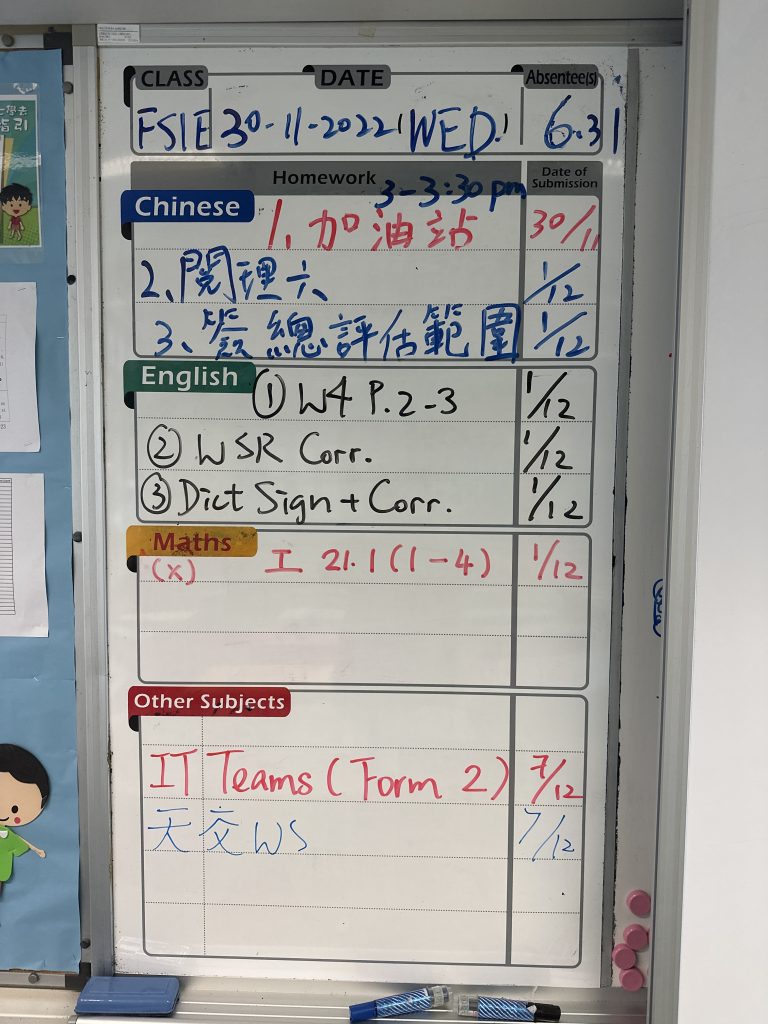 CLASS DATE Absentee(s)
FS1E 30-11-2022 (WED.) 6.31
Homework Date of Submission
3-3:30 pm
Chinese
1. 加油站 30/11
2、閱理六 1/12
3、簽總評估範圍 1/12
English
① W4 P.2-3 1/12
② WSR Corr. 1/12
③ Dict Sign + Corr. 1/12
Maths
(x) 工 21.1 (1-4) 1/12
Other Subjects
IT Teams (Form 2) 7/12
天交 WS 7/12
學去
指引